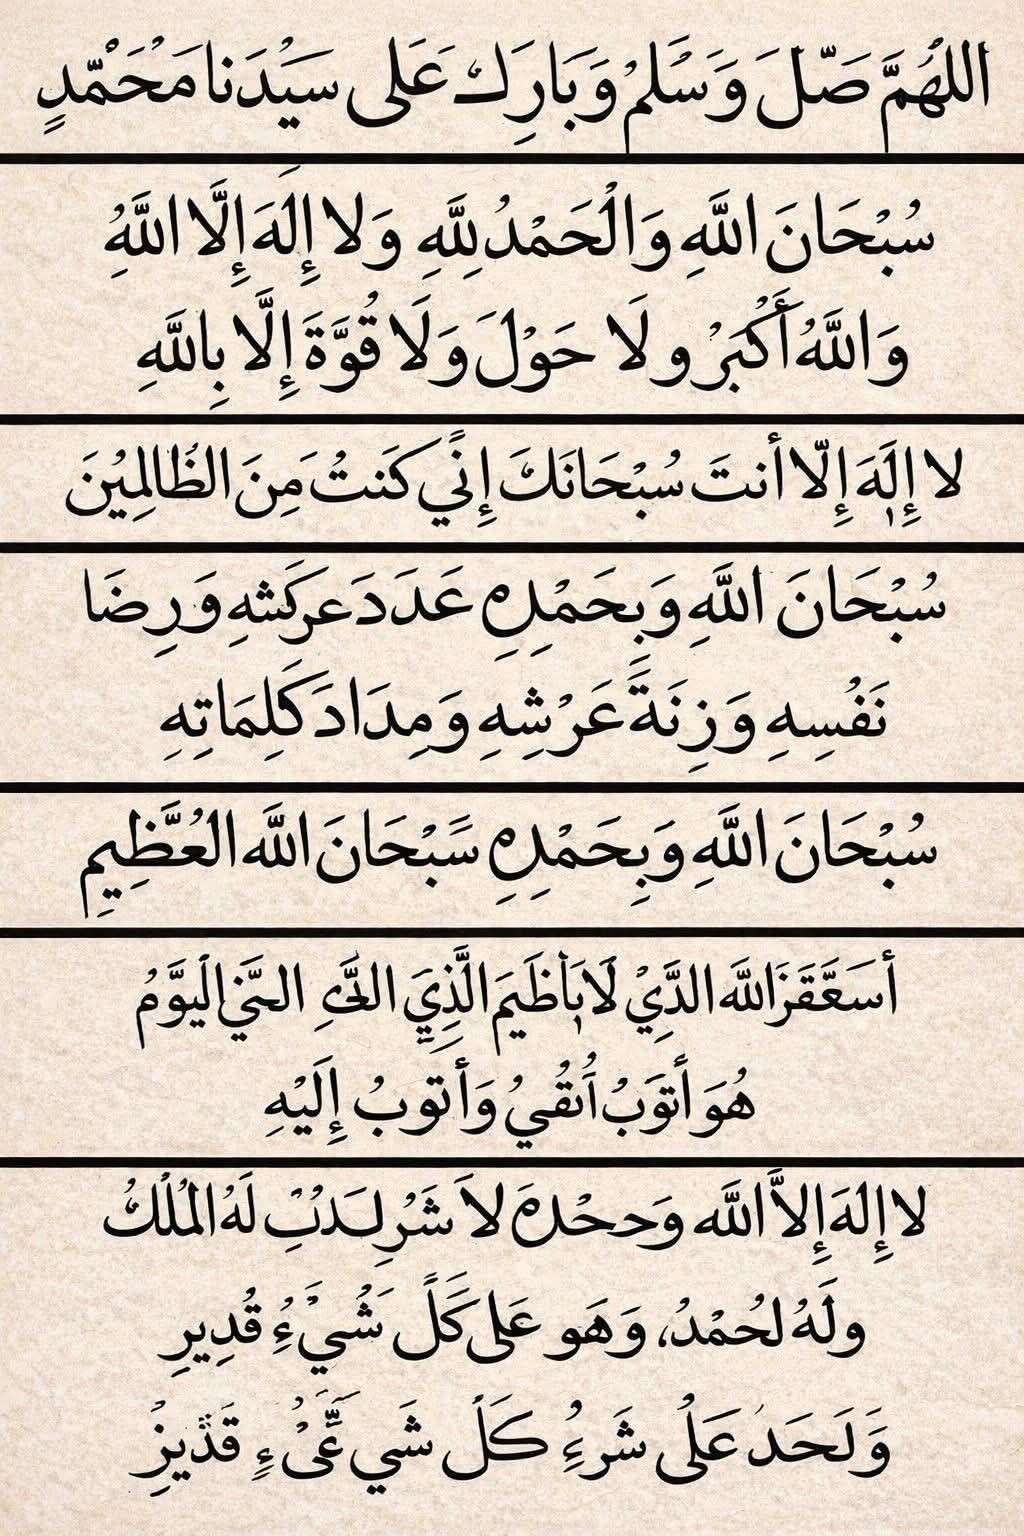 اللهُمَّ صَّلَ وَسَلمْ وَبَارِك عَلى سَيْدَنا مَحَمّدٍ
سُبْحَانَ اللَّهِ وَالْحَمْدُ لِلَّهِ وَلا إِلَهَ إِلَّا اللَّهُ
وَاللَّهُ أَكْبَرْ و لَا حَوْلَ وَلَا قُوَّةَ إِلَّا بِاللَّهِ
لا إِلَهَ إِلّا أنتَ سُبْحَانَكَ إِنَّي كَنتُ مِنَ الظَالِمِيْنَ
سُبْحَانَ اللَّهِ وَبِحَمْدِهِ عَدَدَ عركَشهِ وَرِضَا
نَفْسِهِ وَزِنَةَ عَرْشِهِ وَمِدَادَ كَلِمَاتِهِ
سُبْحَانَ اللَّهِ وَبِحَمْدِهِ سَبْحَانَ اللَّه العُظَّيمِ
أسَعَّقَزَاللَّه الدَّيْ لَا الَّذِيَ اليَوَّمُ
هُوَ أتوَبُ اُنقُيْ وَأتوبُ إِلَيْهِ
لا إِلهَ إِلاَّ اللَّه وَححْدهَ لاَ لَهُ المُلْكُ
ولَهُ لحُمْدُ، وَهَو عَلى كَلَّ شَيْءُ قُدِيرِ
وَلَحَدُ عَلى شَرءُ كَلَ شَي قَدَّيزُ